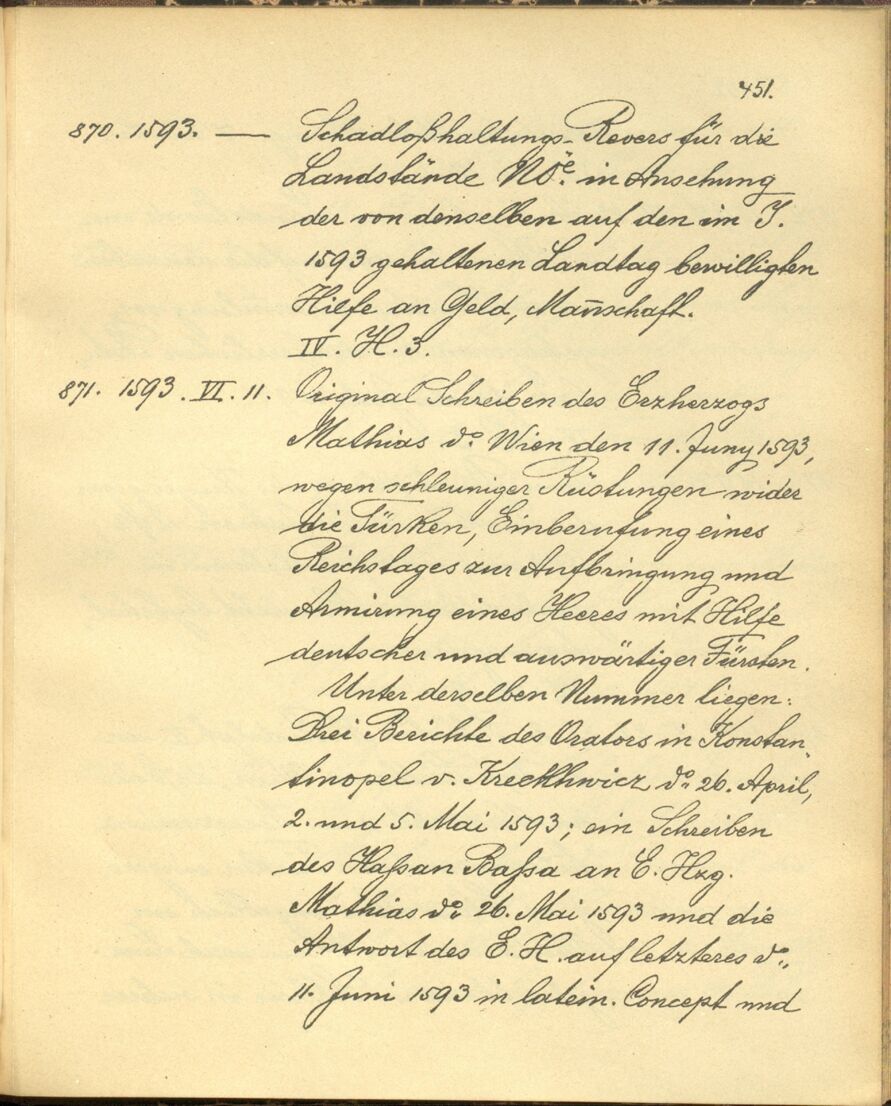 451.
870. 1593. — Schadloßhaltungs-Revers für die
Landstände NÖe. in Ansehung
der von denselben auf den im J.
1593 gehaltenen Landtag bewilligten
Hilfe an Geld, Man̄schaft.
IV. H. 3.
871. 1593. VI. 11. Original Schreiben des Erzherzogs
Mathias do. Wien den 11. Juny 1593,
wegen schleuniger Rüstungen wider
die Türken, Einberufung eines
Reichstages zur Aufbringung und
Armirung eines Heeres mit Hilfe
deutscher und auswärtiger Fürsten.
Unter derselben Nummer liegen:
Drei Berichte des Orators in Konstan-
tinopel v. Kreckhwicz do. 26. April,
2. und 5. Mai 1593; ein Schreiben
des Haßan Baßa an E. Hzg.
Mathias do. 26. Mai 1593 und die
Antwort des E. H. auf letzteres do.
11. Juni 1593 in latein. Concept und